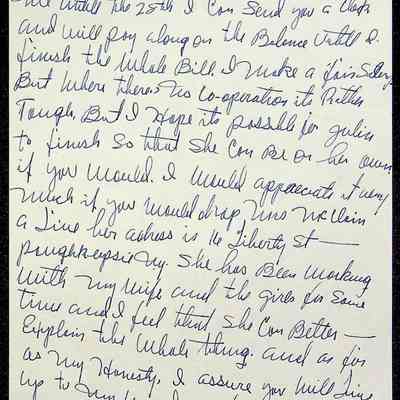 me untill the 25th I Can Send you a Check
and will pay along on the Balance Untill I
finish the Whole Bill. I Make a fair Salery
But Where theres No Co-operation its Rather
Tough, But I Hope its possible for Julie
to finish So that She Can Be on her own
if you Would. I Would appreciate it very
Much if you Would drop Mrs
a Line her adress is 16 Liberty St —
poughkeepsie Ny. She has Been Working
With My Wife and the girls for Some
time and I feel that She Can Better —
Explain the Whole thing. and as for
as My Honesty, I assure you Will Live
up to My